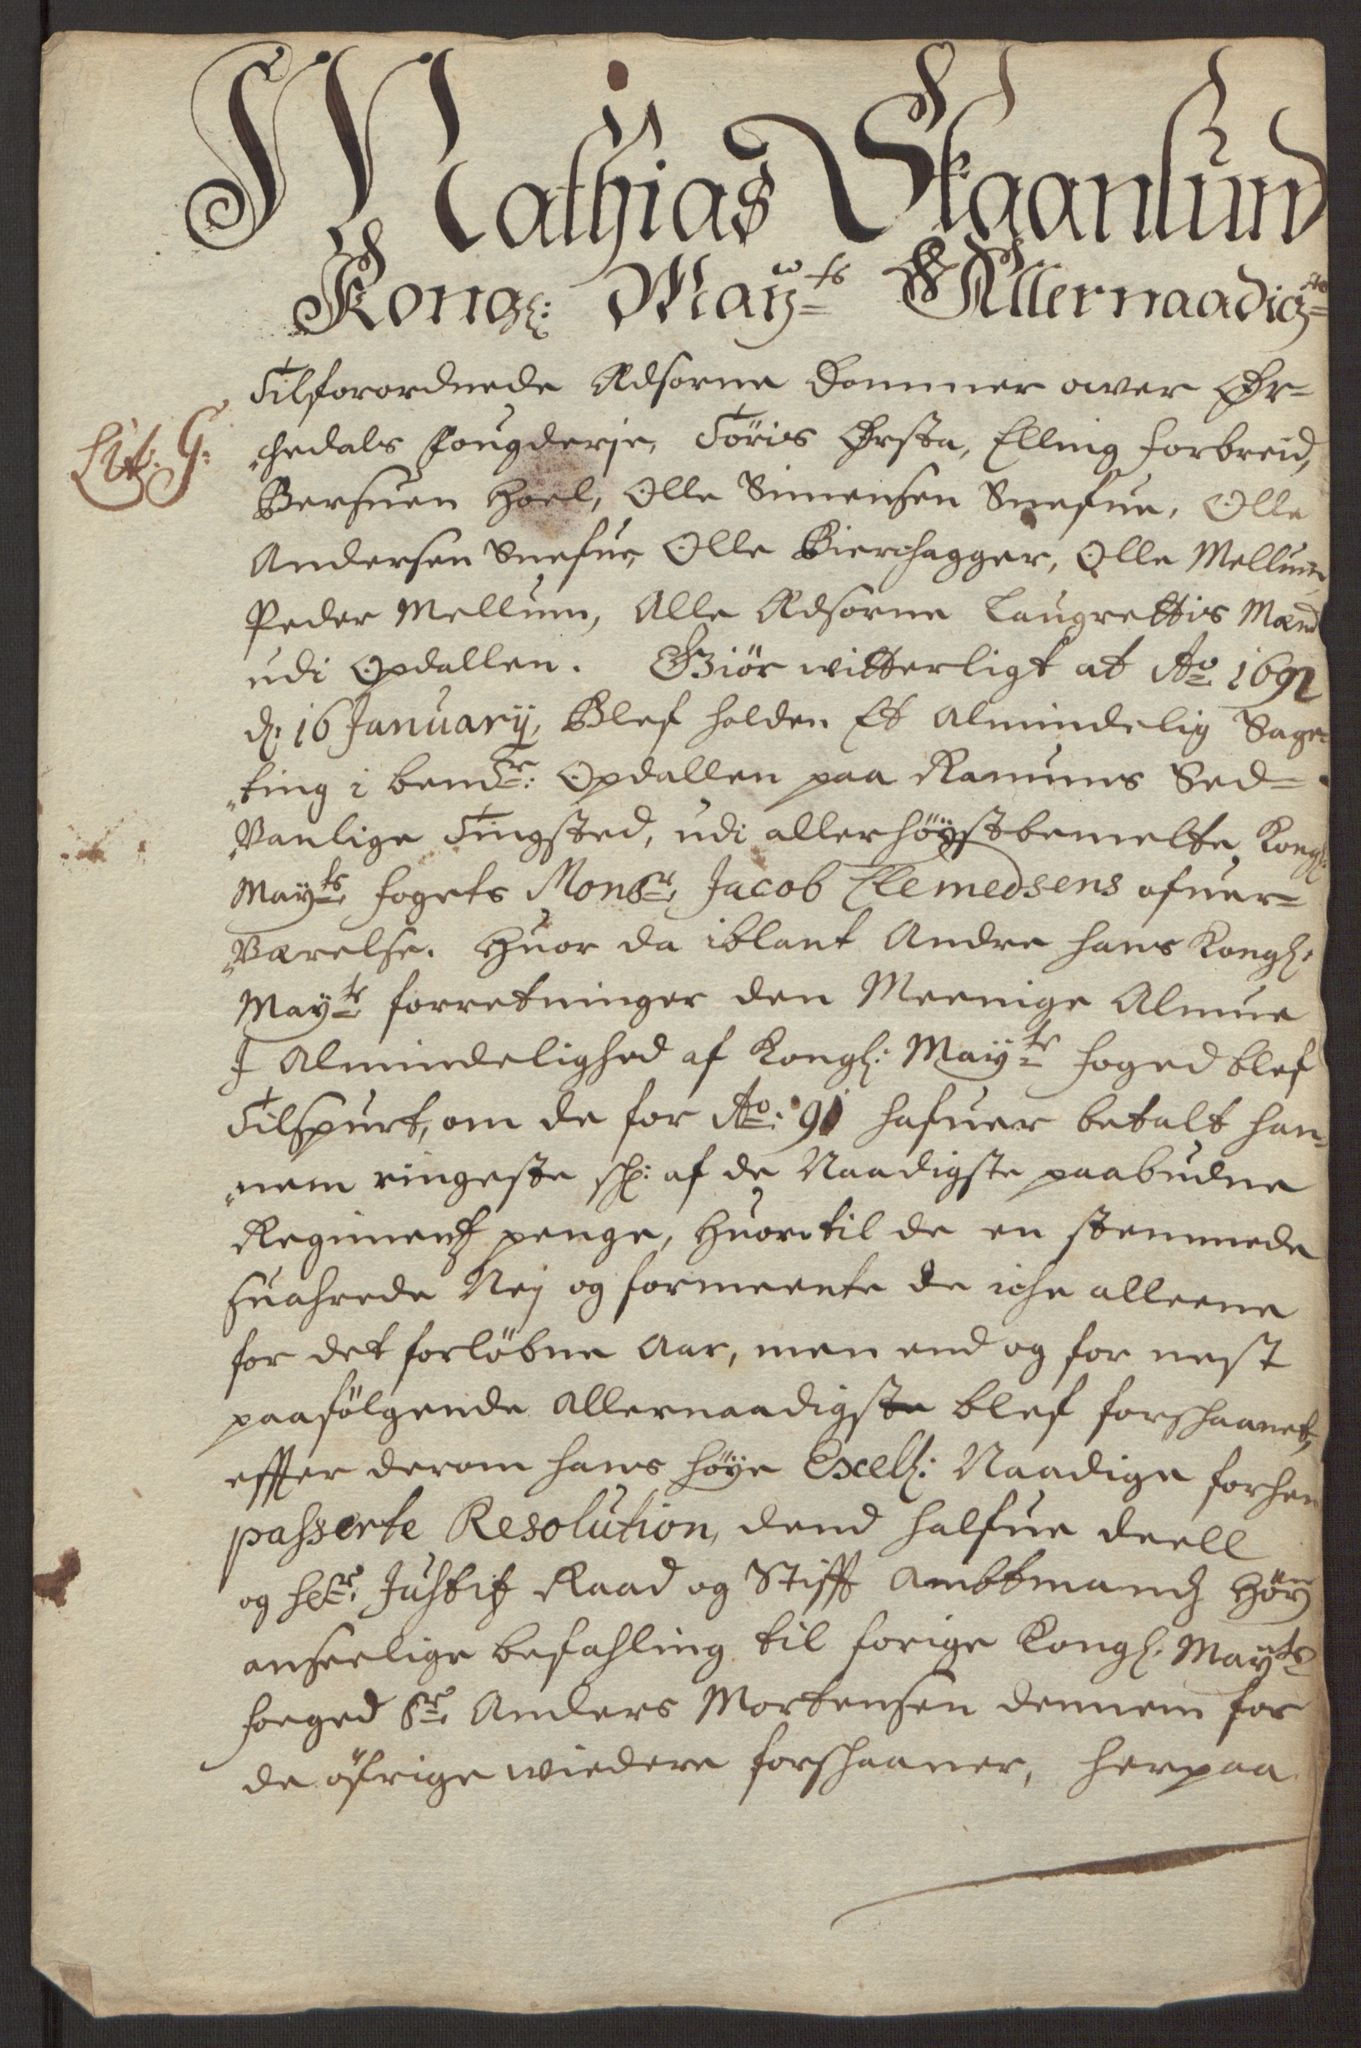 Mathias Skaanlund
Kongl: May:ts Allernaadigste
Tilforordnede Edsorne Dommer over Ør-
Lit: G:
chedals Fougderje, Töris Ørsta, Elling Forbreid,
Bersuen Hoel, Olle Simensen Snefue, Olle
Andersen Snefue, Olle Bierchagger, Olle Mellum,
Peder Mellum, Alle Edsorne Laugrettis Mænd
udi Opdallen. Giör witterligt at Ao 1692
d: 16 January, Blef holden Et Almindelig Sage-
ting i bemte: Opdallen paa Ranums Sed-
vanlige Tingsted, udi allerhöystbemelte Kongl:
May:ts fogets Monsr Jacob Clemedsens ofuer-
Værelse. Huor da iblant Andre hans Kongl:
May:ts forretninger den Meenige Almue
I Almindelighed af Kongl: May:ts foged blef
Tilspurt, om de for Ao: 91 hafuer betalt han-
nem ringeste sk: af de Naadigste paabudne
Regimentz penge, Huortil de en stemmede
suahrede Nej og formeente de iche alleene
for det forløbne Aar, men end og for nest
paafölgende Allernaadigste blef forskaanet,
effter derom hans höye Excell: Naadige forhen
passerte Resolution, dend halfue deell
og Hr: Justitz Raad og Stifft Ambtmandz Höy
anseelige befahling til forige Kongl: May:ts
foeged Sr. Anders Mortensen dennem for
de öfrige wiedere forskaaner, herpaa